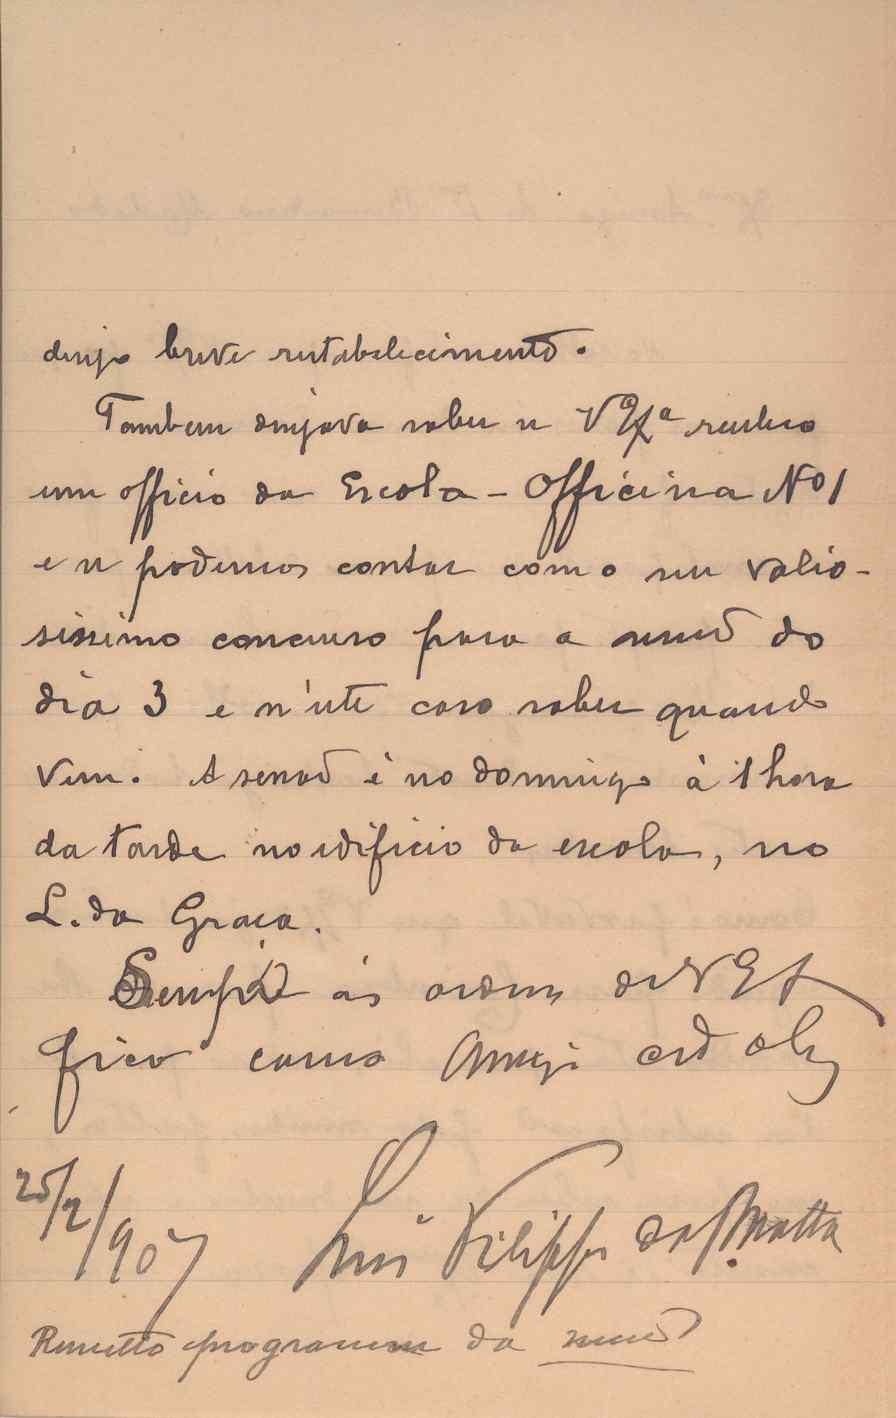 desejo breve restabelecimento.
Tambem desejava saber se V Exª recebeu
um officio da Escola - Officina Nº 1
e se podemos contar com o seu valio-
sissimo concurso para a sessão do
dia 3 e n'este caso saber quando
vem. A sessão é no domingo á 1 hora
da tarde no edificio da escola, no
L. da Graça.
Sempre ás ordens de V Ex
fico como Amigo
25/2/907 Luis Filippe da Matta
Remetto programma da sessão